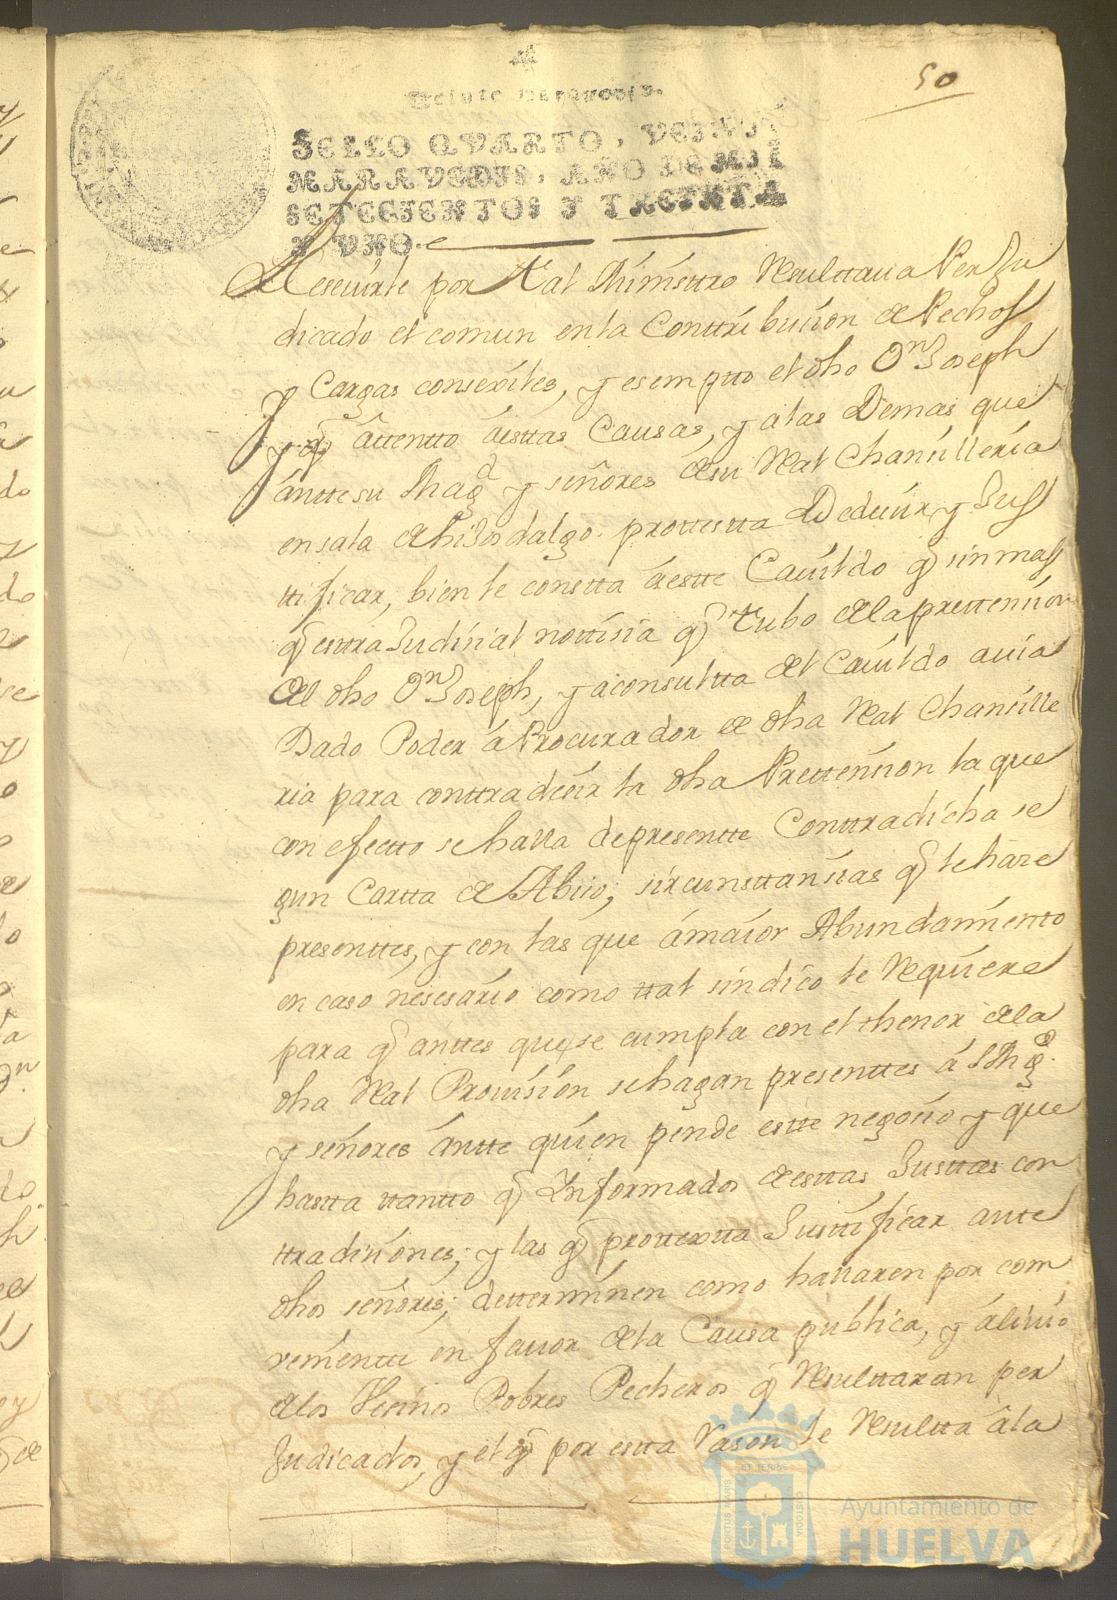 50
Veinte maravedis.
SELLO QVARTO, VEINTE
MARAVEDIS, AÑO DE MIL
SETECIENTOS Y TREINTA
Y VNO.
por tal Ministtro Resulttaua Perju
dicado el comun en la Conttribucion de Pechos
y Cargas consexiles, y esemptto el dho Dn Joseph
y q̃ attentto a esttas Causas, y a las Demas que
antte su Magd y señores de su Real Chansilleria
en sala de hijos dalgo protextta Deducir, y Jus
ttificar, bien le constta a estte Cauildo q̃ sin mas
q̃ esttra Judisial nottisia q̃ tubo de la prettension
del dho Dn Joseph, y a consultta del Cauildo auia
Dado Poder a Procurador de dha Real Chansille
ria para conttradesir la dha Prettension la que
con efectto se halla de presentte Conttradicha se
gun Cartta de Abiso; sircunsttansias q̃ le hase
presenttes, y con las que a maior Abundamiento
en caso nesesario como ttal sindico le Requiere
para q̃ anttes que se cumpla con el thenor de la
dha Real Prouision se hagan presenttes a S Magd.
y señores antte quien pende estte negosio y que
hastta ttantto q̃ Informados de esttas Justtas con
ttradisiones; y las q̃ protextta Justtificar ante
dhos señores; detterminen como hallaren por com
benientte en fauor de la Causa publica, y aliuio
de los Vesinos Pobres Pecheros q̃ Resulttaran per
Judicados, y el q̃ por estta Rason le Resultta a la
PORTUS MARIS ET TERRAE CUSTODIA
Ayuntamiento de
HUELVA